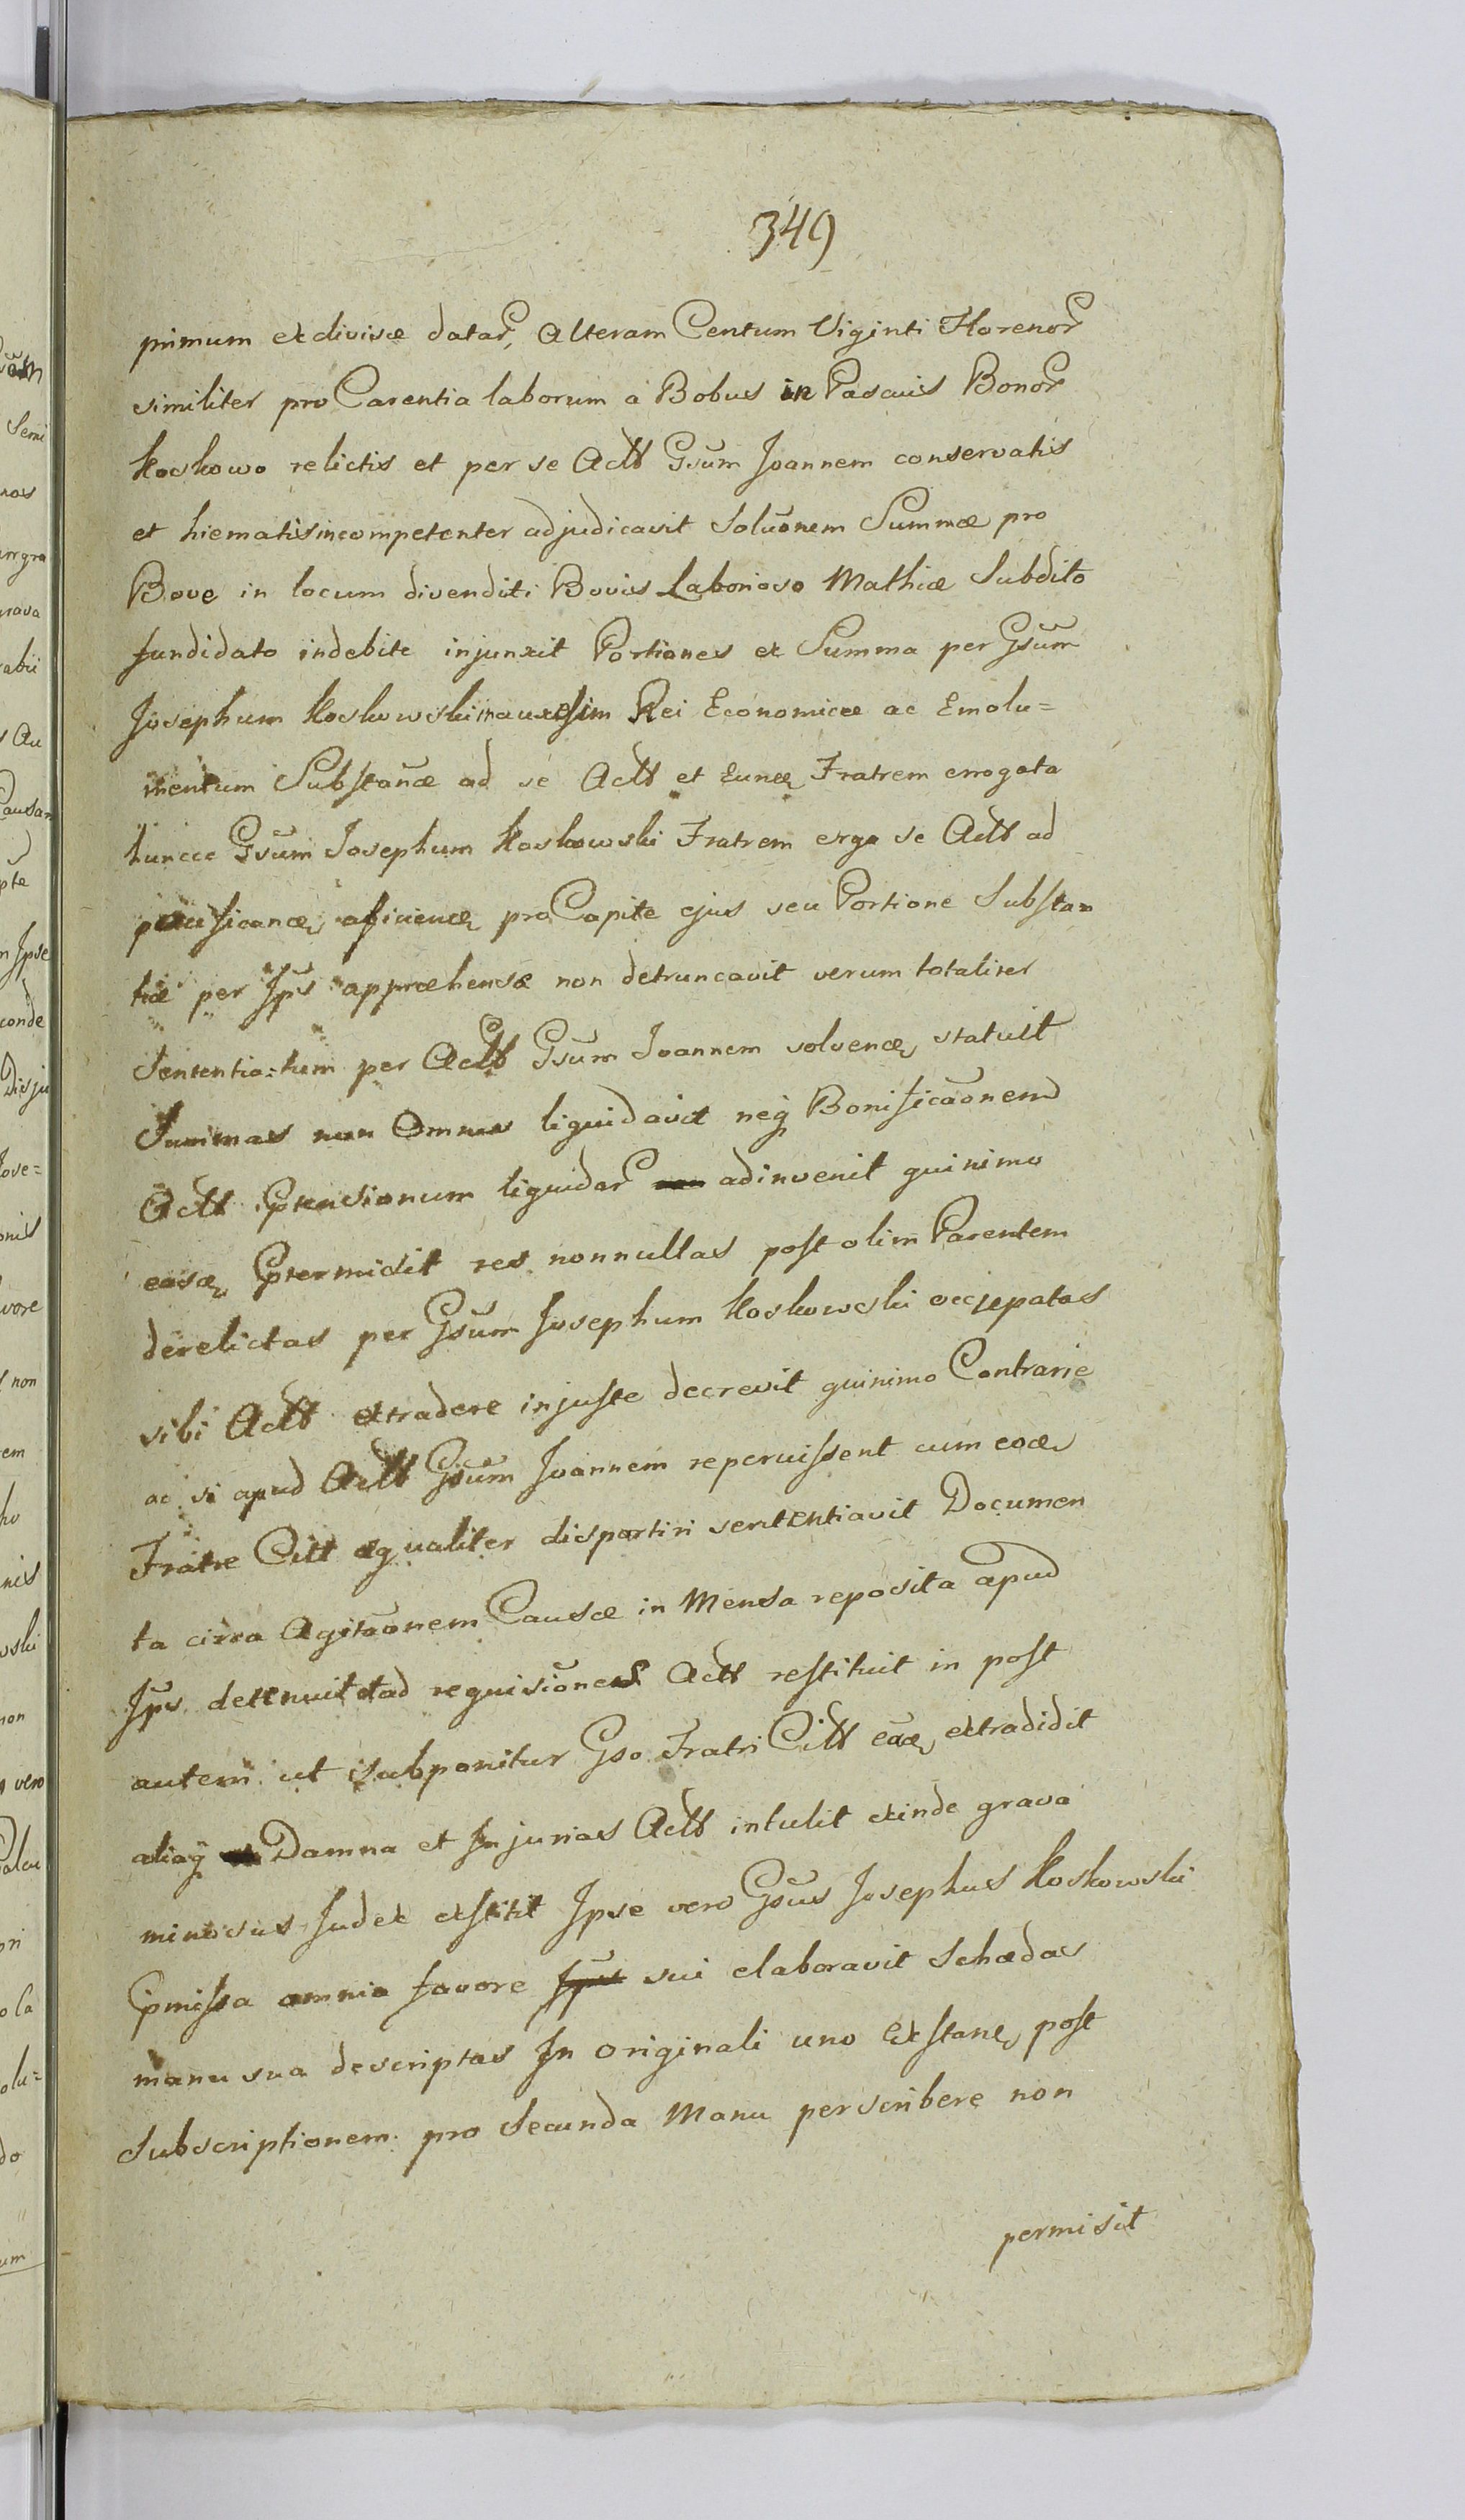 349
primum et divisæ datar, Alteram Centum Viginti Florenor
similiter pro Carentia laborum a Bobus in Pascuis Bonor
Koskowo relictis et per se Actt Gsum Joannem conservatis
et hiematis incompetenter adjudicavit Soluōnem Summæ pro
Bove in locum divenditi Bovis Laborioso Mathiæ Subdito
fundidato indebite injunxit Portiones ex Summa per Gsūm
Josephum Koskowski in Rei Economicæ ac Emolu=
mentum Substanæ ad se Actt et Fratrem erogata
huncce Gsūm Josephum Koskowski Fratrem erga se Actt ad
pro Capite ejus seu Portione Substan
tiæ per Jps appræhensæ non detruncavit verum totaliter
Sententia=tum per Actt Gsūm Joannem solvenæ statuit
Summas non Omnes liquidavit neq Bonificaōnem
Actt Ptensionum liquidar adinvenit quinimo
easæ Ptermisit res nonnullas post olim Parentem
derelictas per Gsūm Josephum Koskowski occupatas
sibi Actt extradere injuste decrevit quinimo Contrarie
ac si apud Actt Gsūm Joannem reperuissent cum eoæ
Fratre Citt æqualiter dispartiri sententiavit Documen
ta circa Agitaōnem Causæ in Mensa reposita apud
Jps detenuit et ad requisiōnem Actt restituit in post
autem ut subponitur Gso Fratri Citt eaæ extradidit
aliaq Damna et Injurias Actt intulit exinde grava
minosus Judex exstitit Ipse vero Gsus Josephus Koskowski
Pmissa omnia favore sui elaboravit Schædas
manu sua descriptas In originali uno Exstane post
Subscriptionem pro Secunda Manu perscribere non
permisit